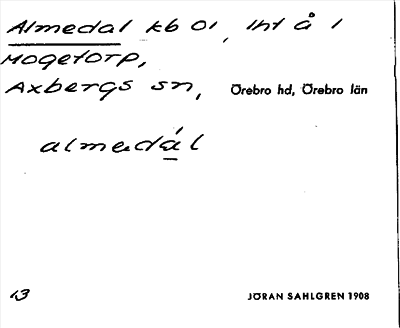 Almedal kb 01, Int å 1
Mogetorp,
Axbergs sn, Örebro hd, Örebro län
almedál
13
JÖRAN SAHLGREN 1908